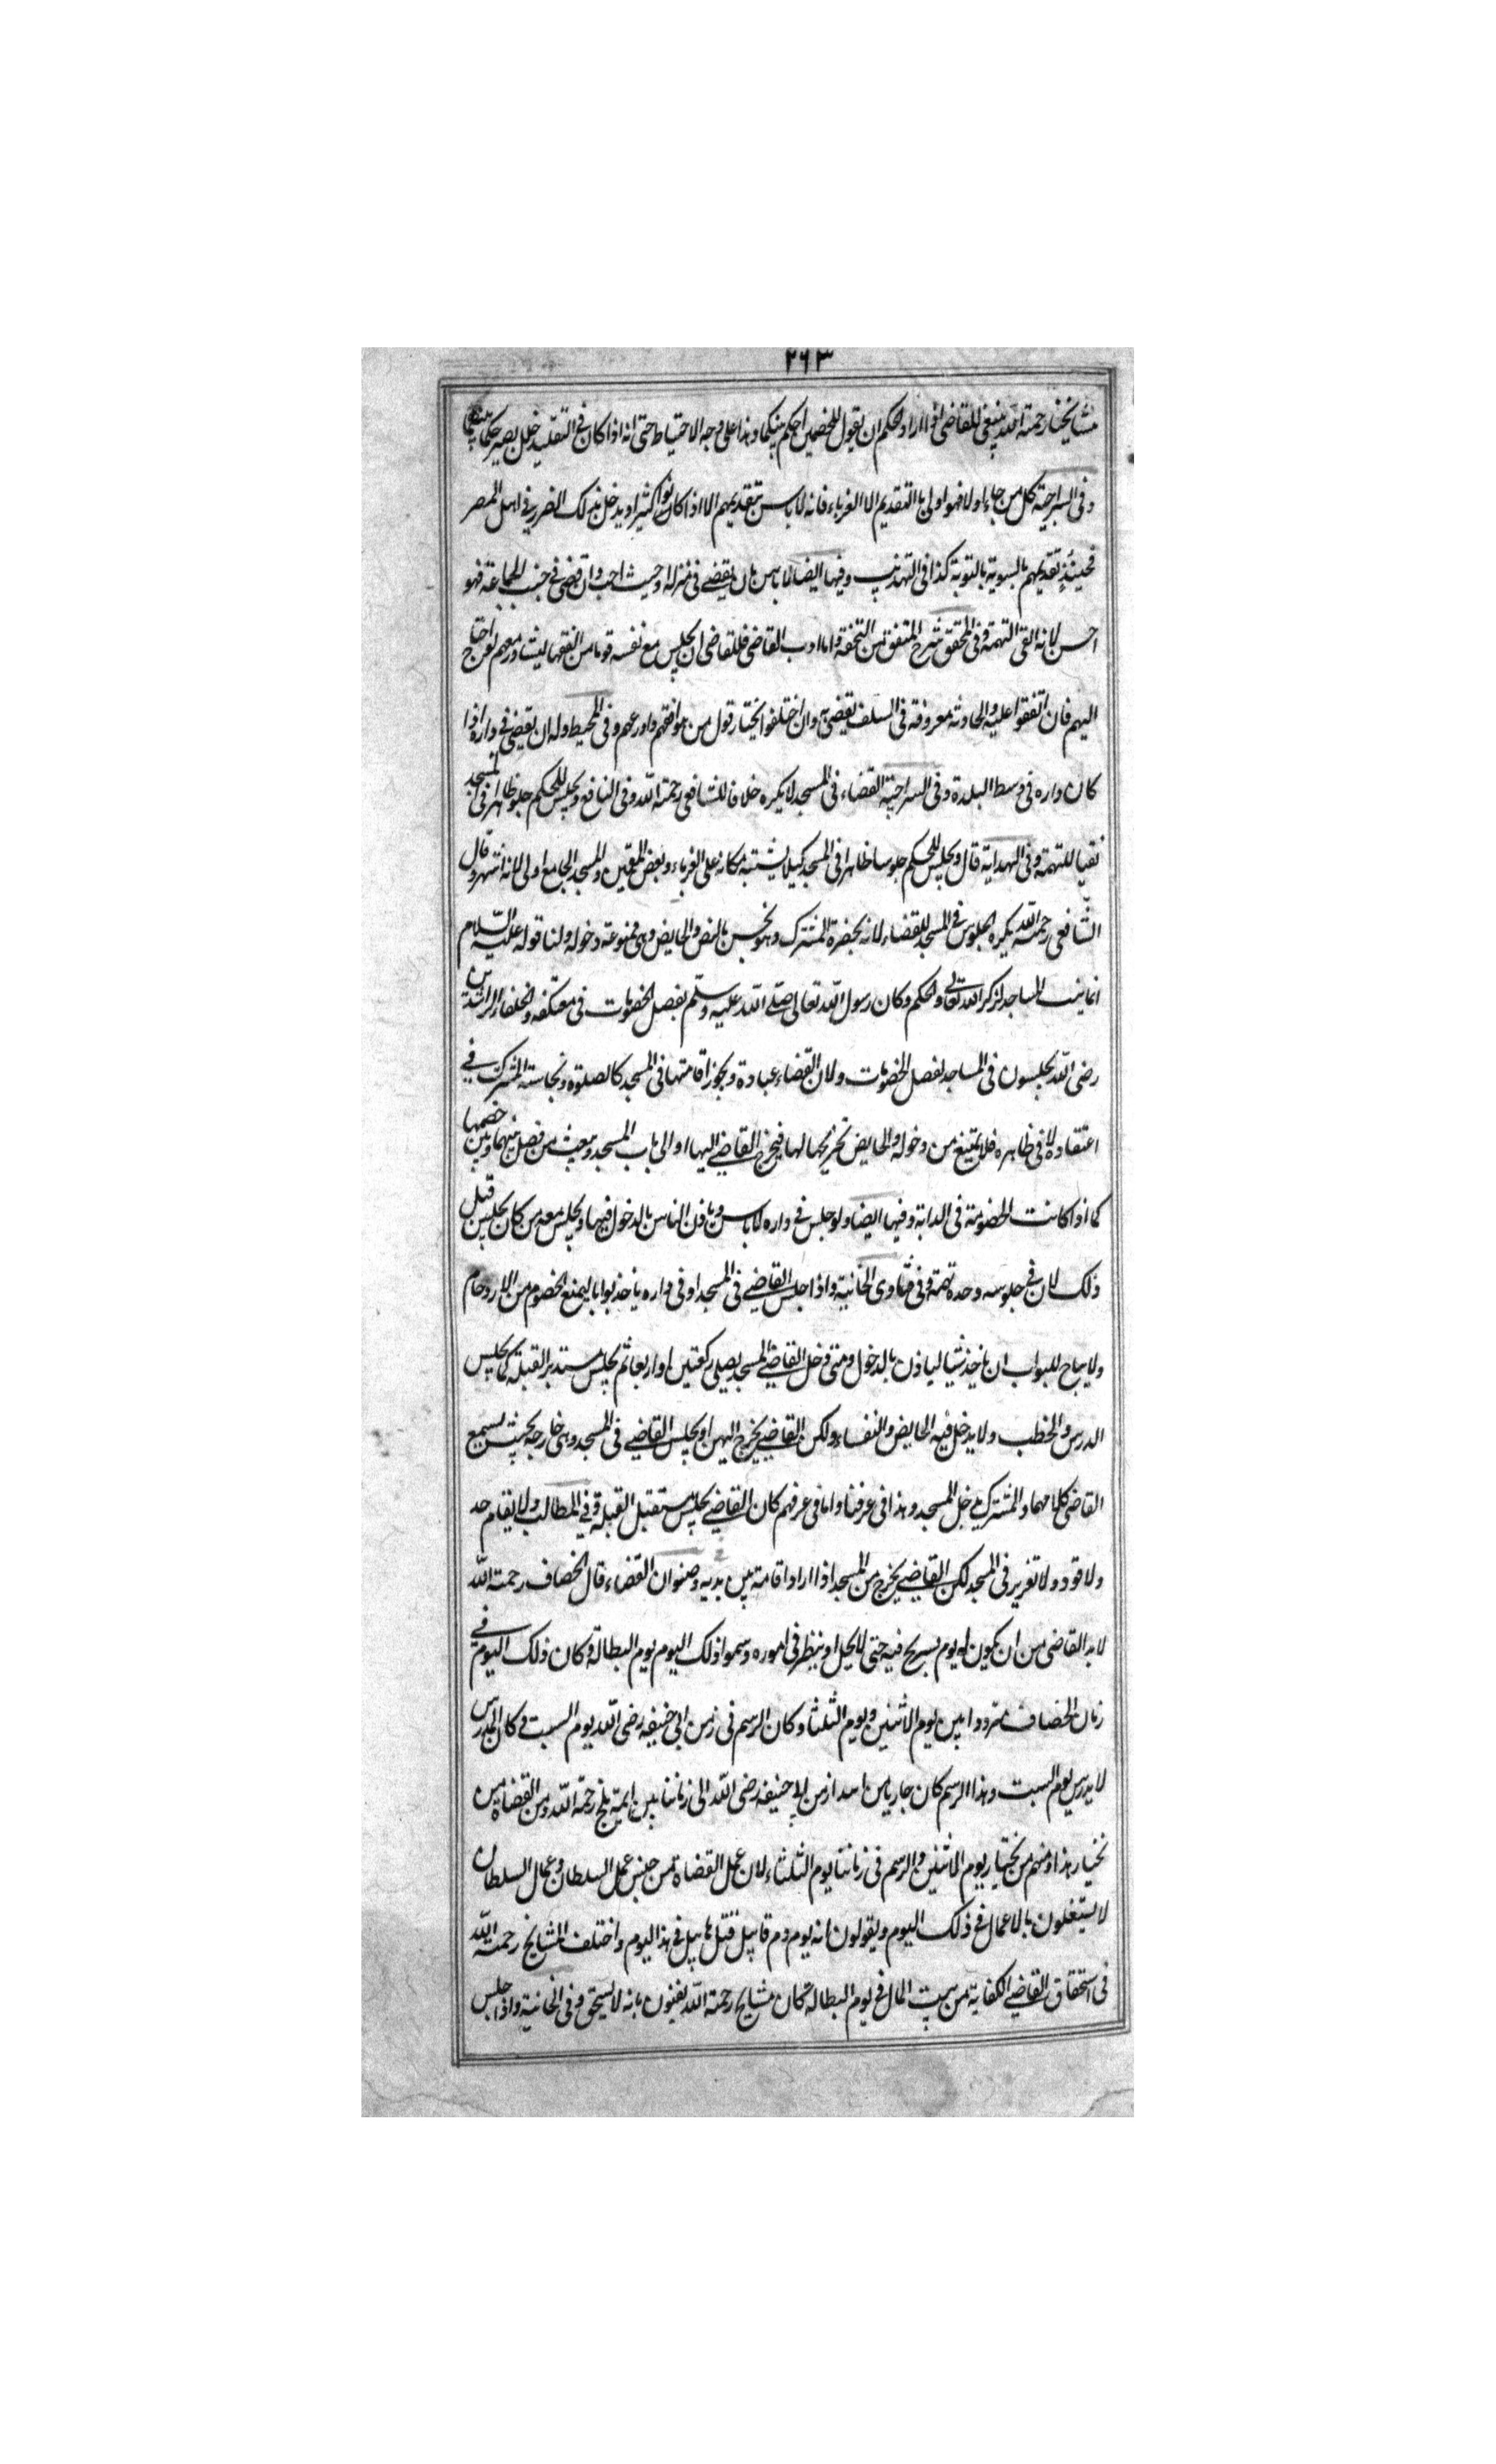 ٢٦٣
مشايخنا رحمة الله ينبغي للقاضي اذا اراد الحكم ان يقول للخصمين احكم بينكما وهذا على وجه الاحتياط حتى انه اذا كان في التقليد خلل يصير حكما بينهما
وفي السراجية كل من جاء اولا فهو اولى بالتقديم الا الغرباء فانه لا باس بتقديمهم الا اذا كانوا كثيرا ويدخل بذلك الضرر في اهل المصر
فحينئذ تقديمهم بالسوية بالنوبة كذا في التهذيب وفيها ايضا لا باس بان يقضي في منزله او حيث احب وان قضى في جنب الجماعة فهو
احسن لانه انقى التهمة وفي المحقق شرح المتفق من التحفة واما ادب القاضي فللقاضي ان يجلس مع نفسه قوما من الفقهاء ليشاورهم لو احتاج
اليهم فان اتفقوا عليه والحادثة معروفة في السلف يقضي به وان اختلفوا يختار قول من هو افقههم واورعهم وفي المحيط وله ان يقضي في داره اذا
كان داره في وسط البلدة وفي السراجية القضاء في المسجد لا يكره خلافا للشافعي رحمة الله وفي النافع ويجلس للحكم جلوسا ظاهرا في المسجد
نفيا للتهمة وفي الهداية قال ويجلس للحكم جلوسا ظاهرا في المسجد كيلا يشتبه مكانه على الغرباء وبعض المقيمين والمسجد الجامع اولى لانه اشهر وقال
الشافعي رحمة الله يكره الجلوس في المسجد للقضاء لانه يحضره المشرك وهو نجس بالنص والحايض وهي ممنوعة دخوله ولنا قوله عليه السلام
انما بنيت المساجد لذكر الله تعالى والحكم وكان رسول الله تعالى صلى الله عليه وسلم يفصل الخصومات في معتكفه والخلفاء الراشدين
رضي الله يجلسون في المساجد لفصل الخصومات ولان القضاء عبادة ويجوز اقامتها في المسجد كالصلوة ونجاسة المشرك في
اعتقاده لا في ظاهره فلا يمنع من دخوله والحايض تخبر بحالها فيخرج القاضي اليها او الى باب المسجد ويبعث من يفصل بينها وبين خصمها
كما اذا كانت الخصومة في الدابة وفيها ايضا ولو جلس في داره لا باس وياذن الناس بالدخول فيها ويجلس معه من كان يجلس قبل
ذلك لان في جلوسه وحده تهمة وفي فتاوى الخانية واذا جلس القاضي في المسجد او في داره ياخذ بوابا ليمنع الخصوم من الازدحام
ولا يباح للبواب ان ياخذ شيا لياذن بالدخول ومتى دخل القاضي المسجد يصلي ركعتين او اربعا ثم يجلس مستدبر القبلة كما يجلس
المدرس والخطب ولا يدخل فيه الحايض والنفساء ولكن القاضي يخرج اليهن او يجلس القاضي في المسجد وهي خارجه بحيث يسمع
القاضي كلامها والمشرك يدخل المسجد وهذا في عرفنا واما في عرفهم كان القاضي يجلس مستقبل القبلة وفي المطالب ولا يقام حد
ولا قود ولا تعزير في المسجد لكن القاضي يخرج من المسجد اذا اراد اقامته بين يديه وصنوان القضاء قال الخصاف رحمة الله
لا بد القاضي من ان يكون له يوم يستريح فيه حتى لا يجل او ينظر في اموره وسموا ذلك اليوم يوم البطالة وكان ذلك اليوم في
زمان الخصاف مترددا بين يوم الاثنين ويوم الثلثا وكان الرسم في زمن ابي حنيفه رضي الله يوم السبت كان المدرس
لا يدرس يوم السبت وهذا الرسم كان جاريا من زمن ابي حنيفه رضي الله الى زماننا بين ايمة بلخ رحمة الله ومن القضاة من
يختار هذا ومنهم من يختار يوم الاثنين والرسم في زماننا يوم الثلثاء لان عمل القضاة من جنس عمل السلطان وعمال السلطان
لا يشتغلون بالاعمال في ذلك اليوم ويقولون انه يوم دم قابيل قتل هابيل في هذا اليوم واختلف المشايخ رحمة الله
في استحقاق القاضي الكفاية من بيت المال في يوم البطالة كان مشايخ رحمة الله يفتون بانه لا يستحق وفي الخانية واذا جلس